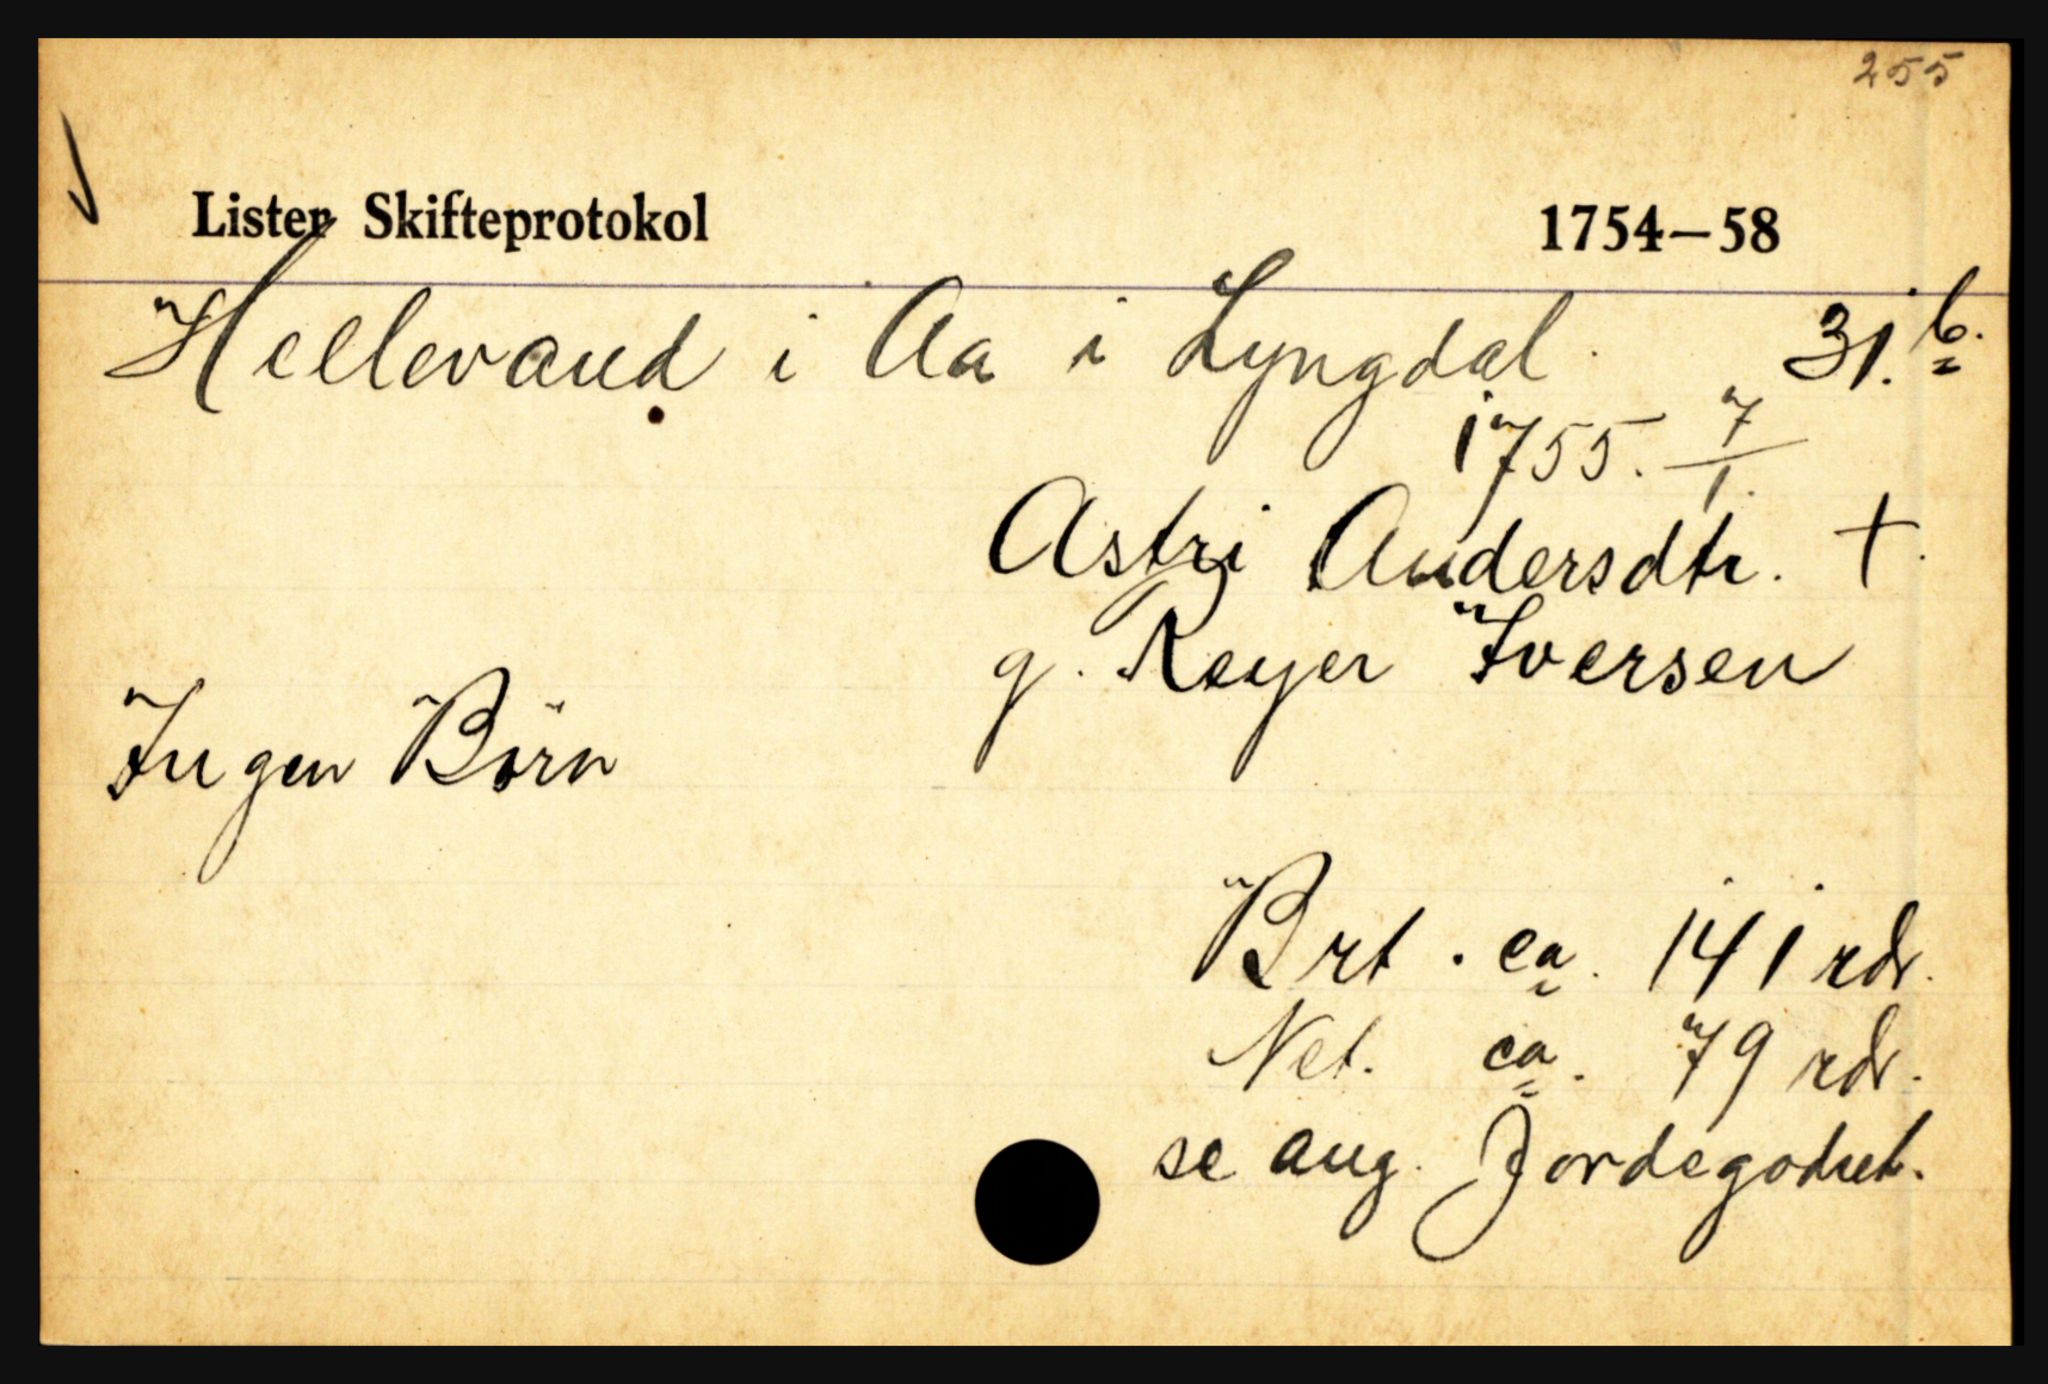 255
Lister Skifteprotokol 1754–58
Hellevand i Aa i Lyngdal. 31.b.
1755. 7/1.
Astri Andersdtr. †.
g. Reyer Iversen
Ingen Börn
Brt. ca. 141 rdr.
Net. ca. 79 rdr.
se ang. Jordegodset.